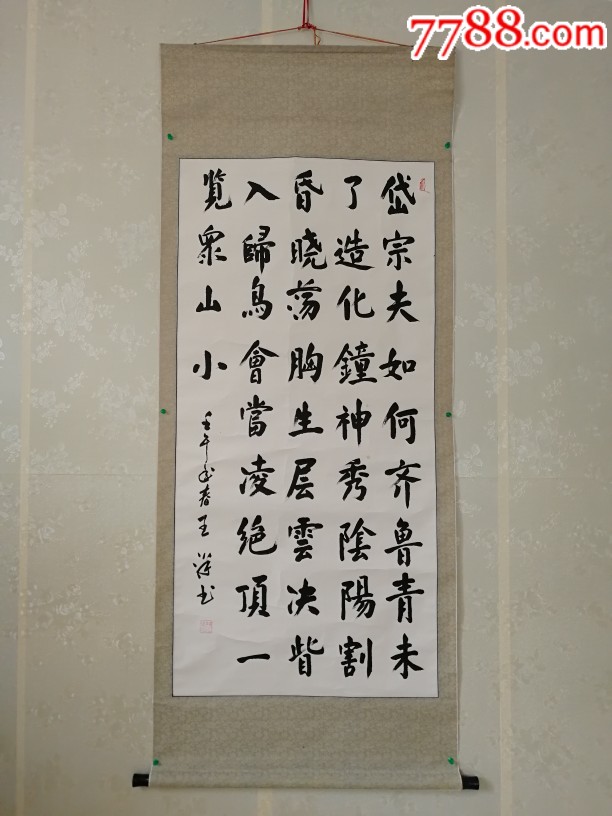 7788.com
岱宗夫如何齐鲁青未
了造化鐘神秀陰陽割
昏晓荡胸生层雲决眥
入歸鳥會當凌绝頂一
覽衆山小
壬午春王书